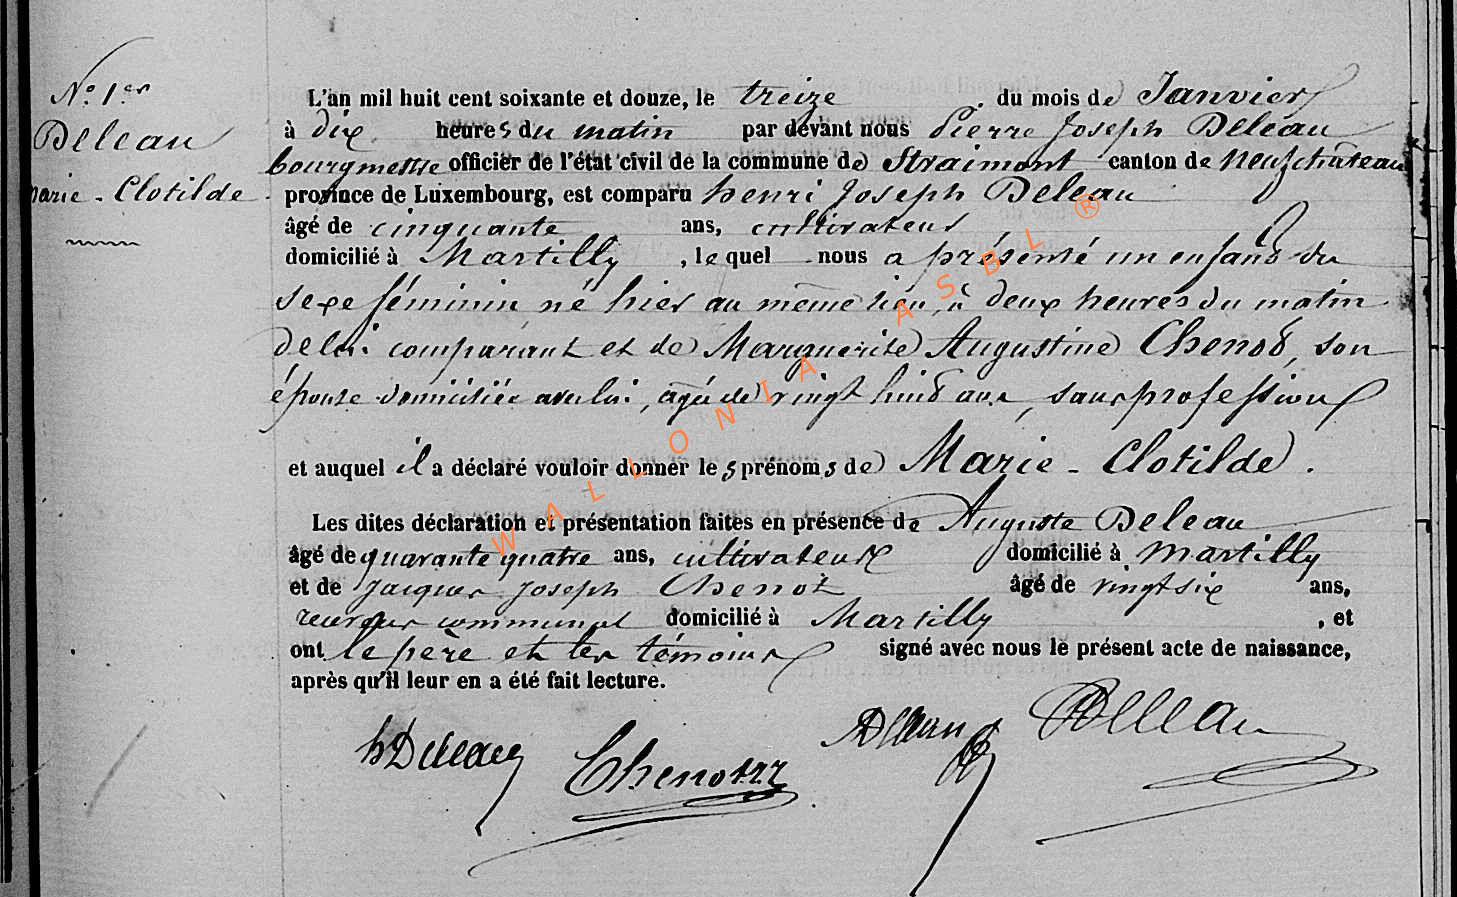 N° 1er
Deleau
Marie - Clotilde
L'an mil huit cent soixante et douze, le treize du mois de Janvier
à dix heures du matin par devant nous Pierre Joseph Deleau
bourgmestre officier de l'état civil de la commune de Straimont canton de Neufchâteau
province de Luxembourg, est comparu henri Joseph Deleau
âgé de cinquante ans, cultivateur
domicilié à Martilly, lequel nous a présenté un enfant du
sexe féminin né hier au même lieu, à deux heures du matin
de lui comparant et de Marguerite Augustine Chenot, son
épouse domiciliée avec lui, agée de vingt huit ans, sans profession
et auquel il a déclaré vouloir donner les prénoms de Marie - Clotilde.
Les dites déclaration et présentation faites en présence de Auguste Deleau
âgé de quarante quatre ans, cultivateur domicilié à Martilly
et de Jacques Joseph Chenot âgé de vingt six ans,
receveur communal domicilié à Martilly, et
ont le père et les témoins signé avec nous le présent acte de naissance,
après qu'il leur en a été fait lecture.
hDeleau Chenot ADeleau Deleau
WALLONIA ASBL ®